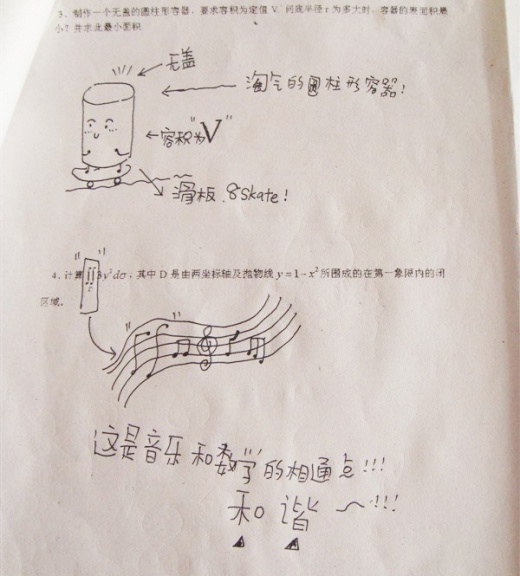 3、制作一个无盖的圆柱形容器，要求容积为定值 V，问底半径 r 为多大时，容器的表面积最
小？并求此最小面积
无盖
淘气的圆柱形容器！
容积为"V"
滑板 8 Skate！
4、计算∬3y²dσ，其中 D 是由两坐标轴及抛物线 y＝1－x² 所围成的在第一象限内的闭
区域。
这是音乐和数学的相通点！！！
和谐～！！！